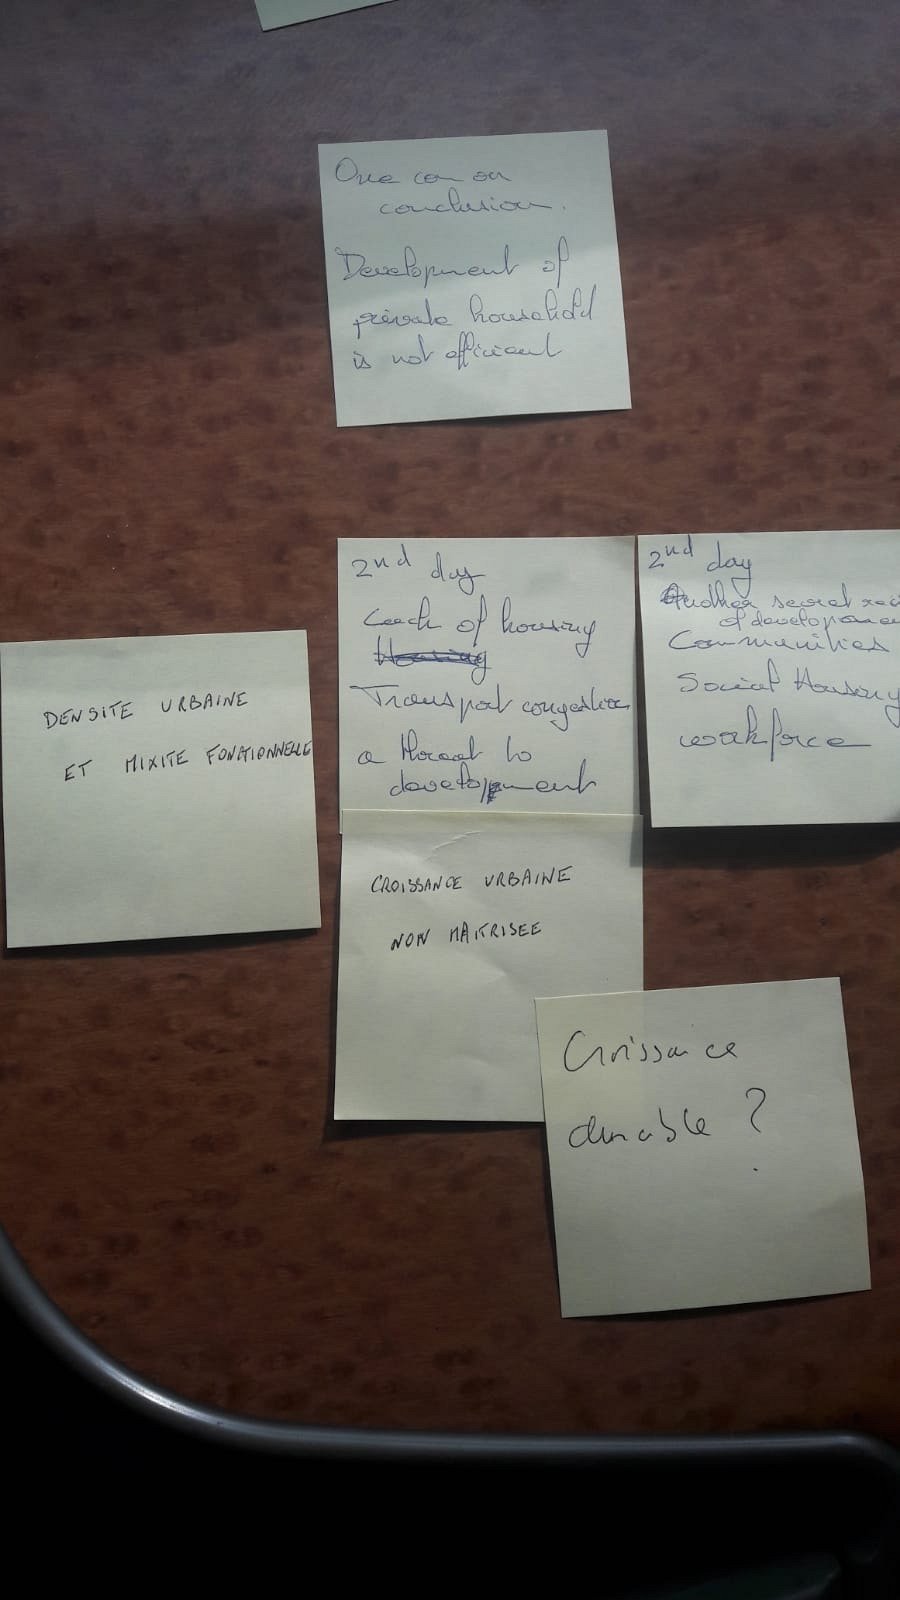 One com on
conclusion.
Development of
private household
is not efficient
2nd day
Lack of housing
Housing
Transport congestion
a threat to
development
2nd day
Another secret
of developmen
Communities
Social Housing
workforce
DENSITE URBAINE
ET MIXITE FONCTIONNELLE
CROISSANCE URBAINE
NON MAITRISEE
Croissance
durable ?